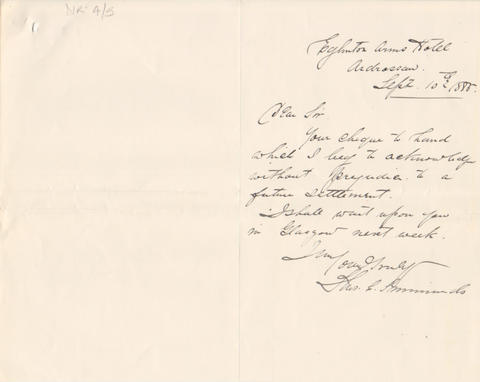 NR 4/5
Eglinton Arms Hotel
Ardrossan.
Sept. 10th 1888.
Dear Sir
Your cheque to hand
which I beg to acknowledge
without prejudice to a
future settlement.
I shall wait upon you
in Glasgow next week.
I am
Yours truly